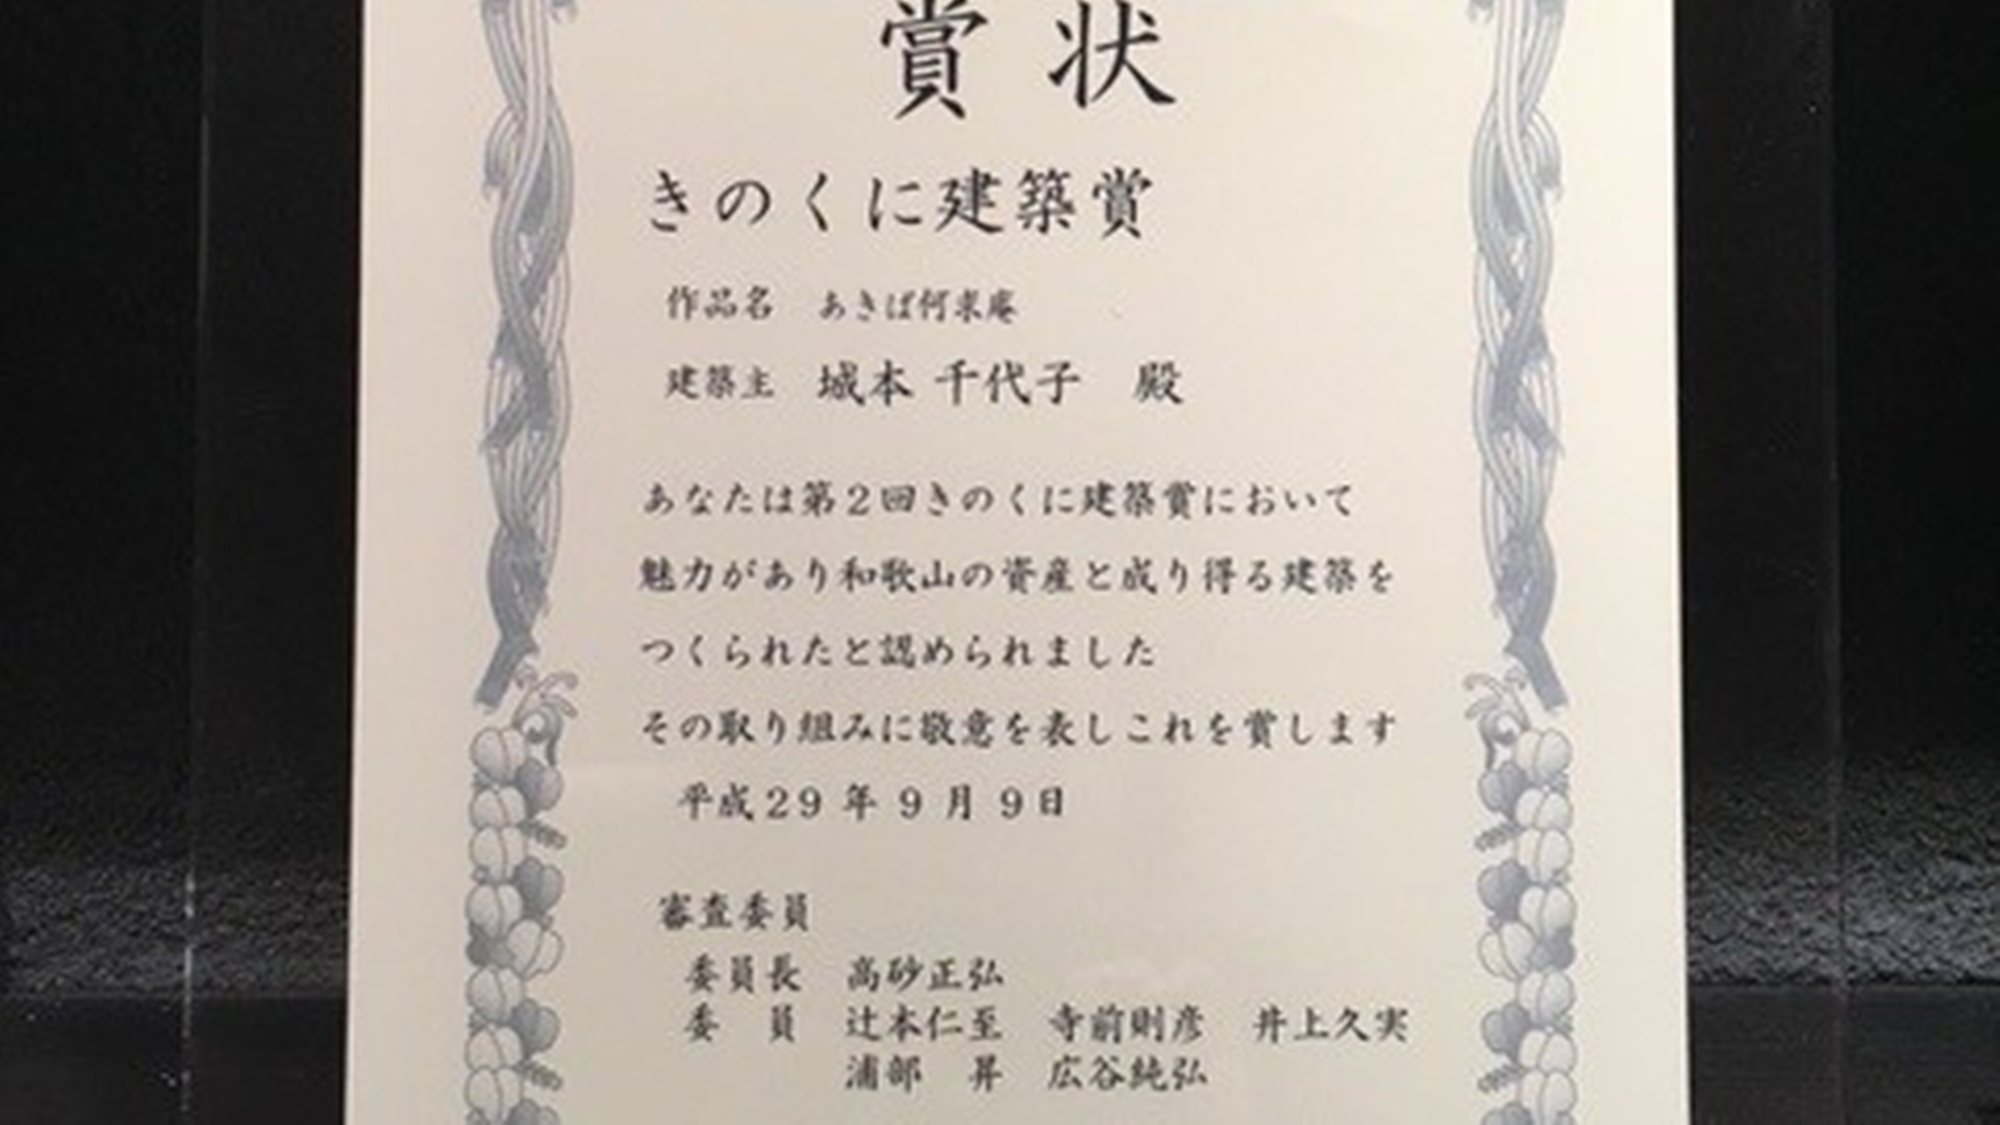 賞状
きのくに建築賞
作品名　あきば何求庵
建築主　城本 千代子　殿
あなたは第２回きのくに建築賞において
魅力があり和歌山の資産と成り得る建築を
つくられたと認められました
その取り組みに敬意を表しこれを賞します
平成２９ 年 ９ 月 ９日
審査委員
委員長　高砂正弘
委　員　辻本仁至　寺前則彦　井上久実
浦部　昇　広谷純弘